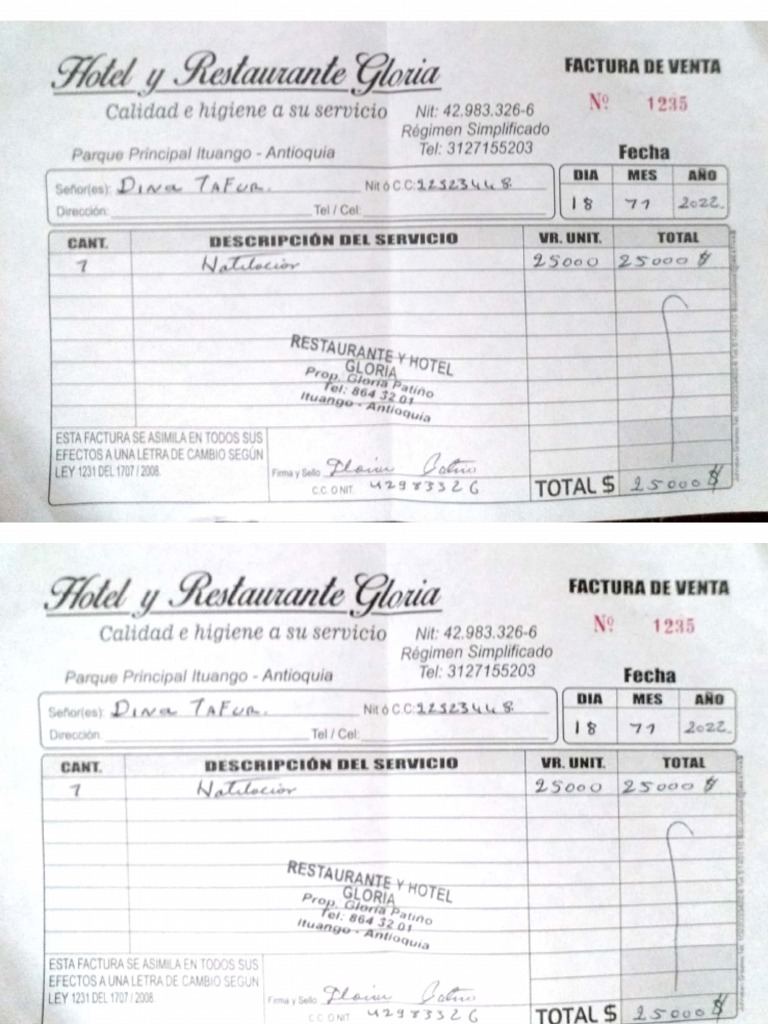 Hotel y Restaurante Gloria
Calidad e higiene a su servicio
Nit: 42.983.326-6
Régimen Simplificado
Tel: 3127155203
Parque Principal Ituango - Antioquia
FACTURA DE VENTA
Nº 1235
Fecha
DIA MES AÑO
18 11 2022
Señor(es): Dina Tafur. Nit ó C.C:
Dirección: Tel / Cel:
CANT. DESCRIPCIÓN DEL SERVICIO VR. UNIT. TOTAL
1 25000 25000 $
RESTAURANTE Y HOTEL
GLORIA
Prop. Gloria Patiño
Tel: 864 32 01
Ituango - Antioquia
ESTA FACTURA SE ASIMILA EN TODOS SUS
EFECTOS A UNA LETRA DE CAMBIO SEGÚN
LEY 1231 DEL 1707 / 2008.
Firma y Sello Gloria Patiño
C.C. O NIT. 42983326
TOTAL $ 25000 $
Hotel y Restaurante Gloria
Calidad e higiene a su servicio
Nit: 42.983.326-6
Régimen Simplificado
Tel: 3127155203
Parque Principal Ituango - Antioquia
FACTURA DE VENTA
Nº 1235
Fecha
DIA MES AÑO
18 11 2022
Señor(es): Dina Tafur. Nit ó C.C:
Dirección: Tel / Cel:
CANT. DESCRIPCIÓN DEL SERVICIO VR. UNIT. TOTAL
1 25000 25000 $
RESTAURANTE Y HOTEL
GLORIA
Prop. Gloria Patiño
Tel: 864 32 01
Ituango - Antioquia
ESTA FACTURA SE ASIMILA EN TODOS SUS
EFECTOS A UNA LETRA DE CAMBIO SEGÚN
LEY 1231 DEL 1707 / 2008.
Firma y Sello Gloria Patiño
C.C. O NIT. 42983326
TOTAL $ 25000 $